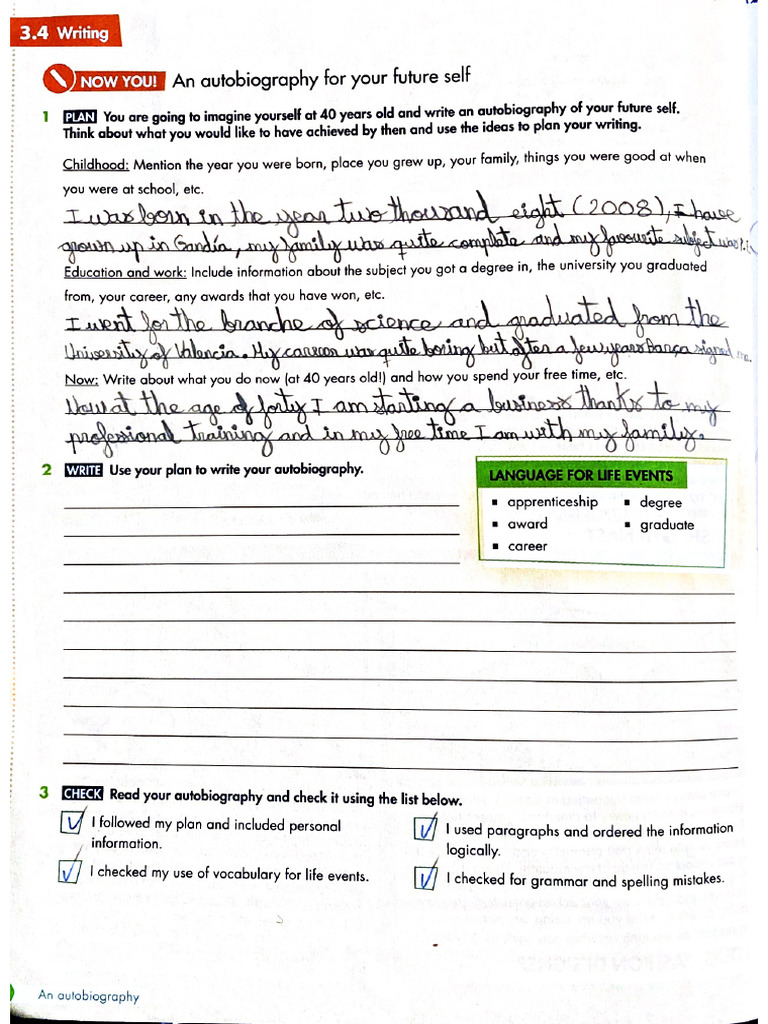 3.4 Writing
NOW YOU! An autobiography for your future self
1 PLAN You are going to imagine yourself at 40 years old and write an autobiography of your future self.
Think about what you would like to have achieved by then and use the ideas to plan your writing.
Childhood: Mention the year you were born, place you grew up, your family, things you were good at when
you were at school, etc.
I was born in the year two thousand eight (2008), I have
grown up in Gandía, my family was quite complete and my favourite subject was
Education and work: Include information about the subject you got a degree in, the university you graduated
from, your career, any awards that you have won, etc.
I went for the branche of science and graduated from the
University of Valencia. My career was quite boring but after a few years Barça signed me.
Now: Write about what you do now (at 40 years old!) and how you spend your free time, etc.
Now at the age of forty I am starting a business thanks to my
professional training and in my free time I am with my family.
2 WRITE Use your plan to write your autobiography.
LANGUAGE FOR LIFE EVENTS
▪ apprenticeship ▪ degree
▪ award ▪ graduate
▪ career
3 CHECK Read your autobiography and check it using the list below.
I followed my plan and included personal
information.
I used paragraphs and ordered the information
logically.
I checked my use of vocabulary for life events.
I checked for grammar and spelling mistakes.
An autobiography